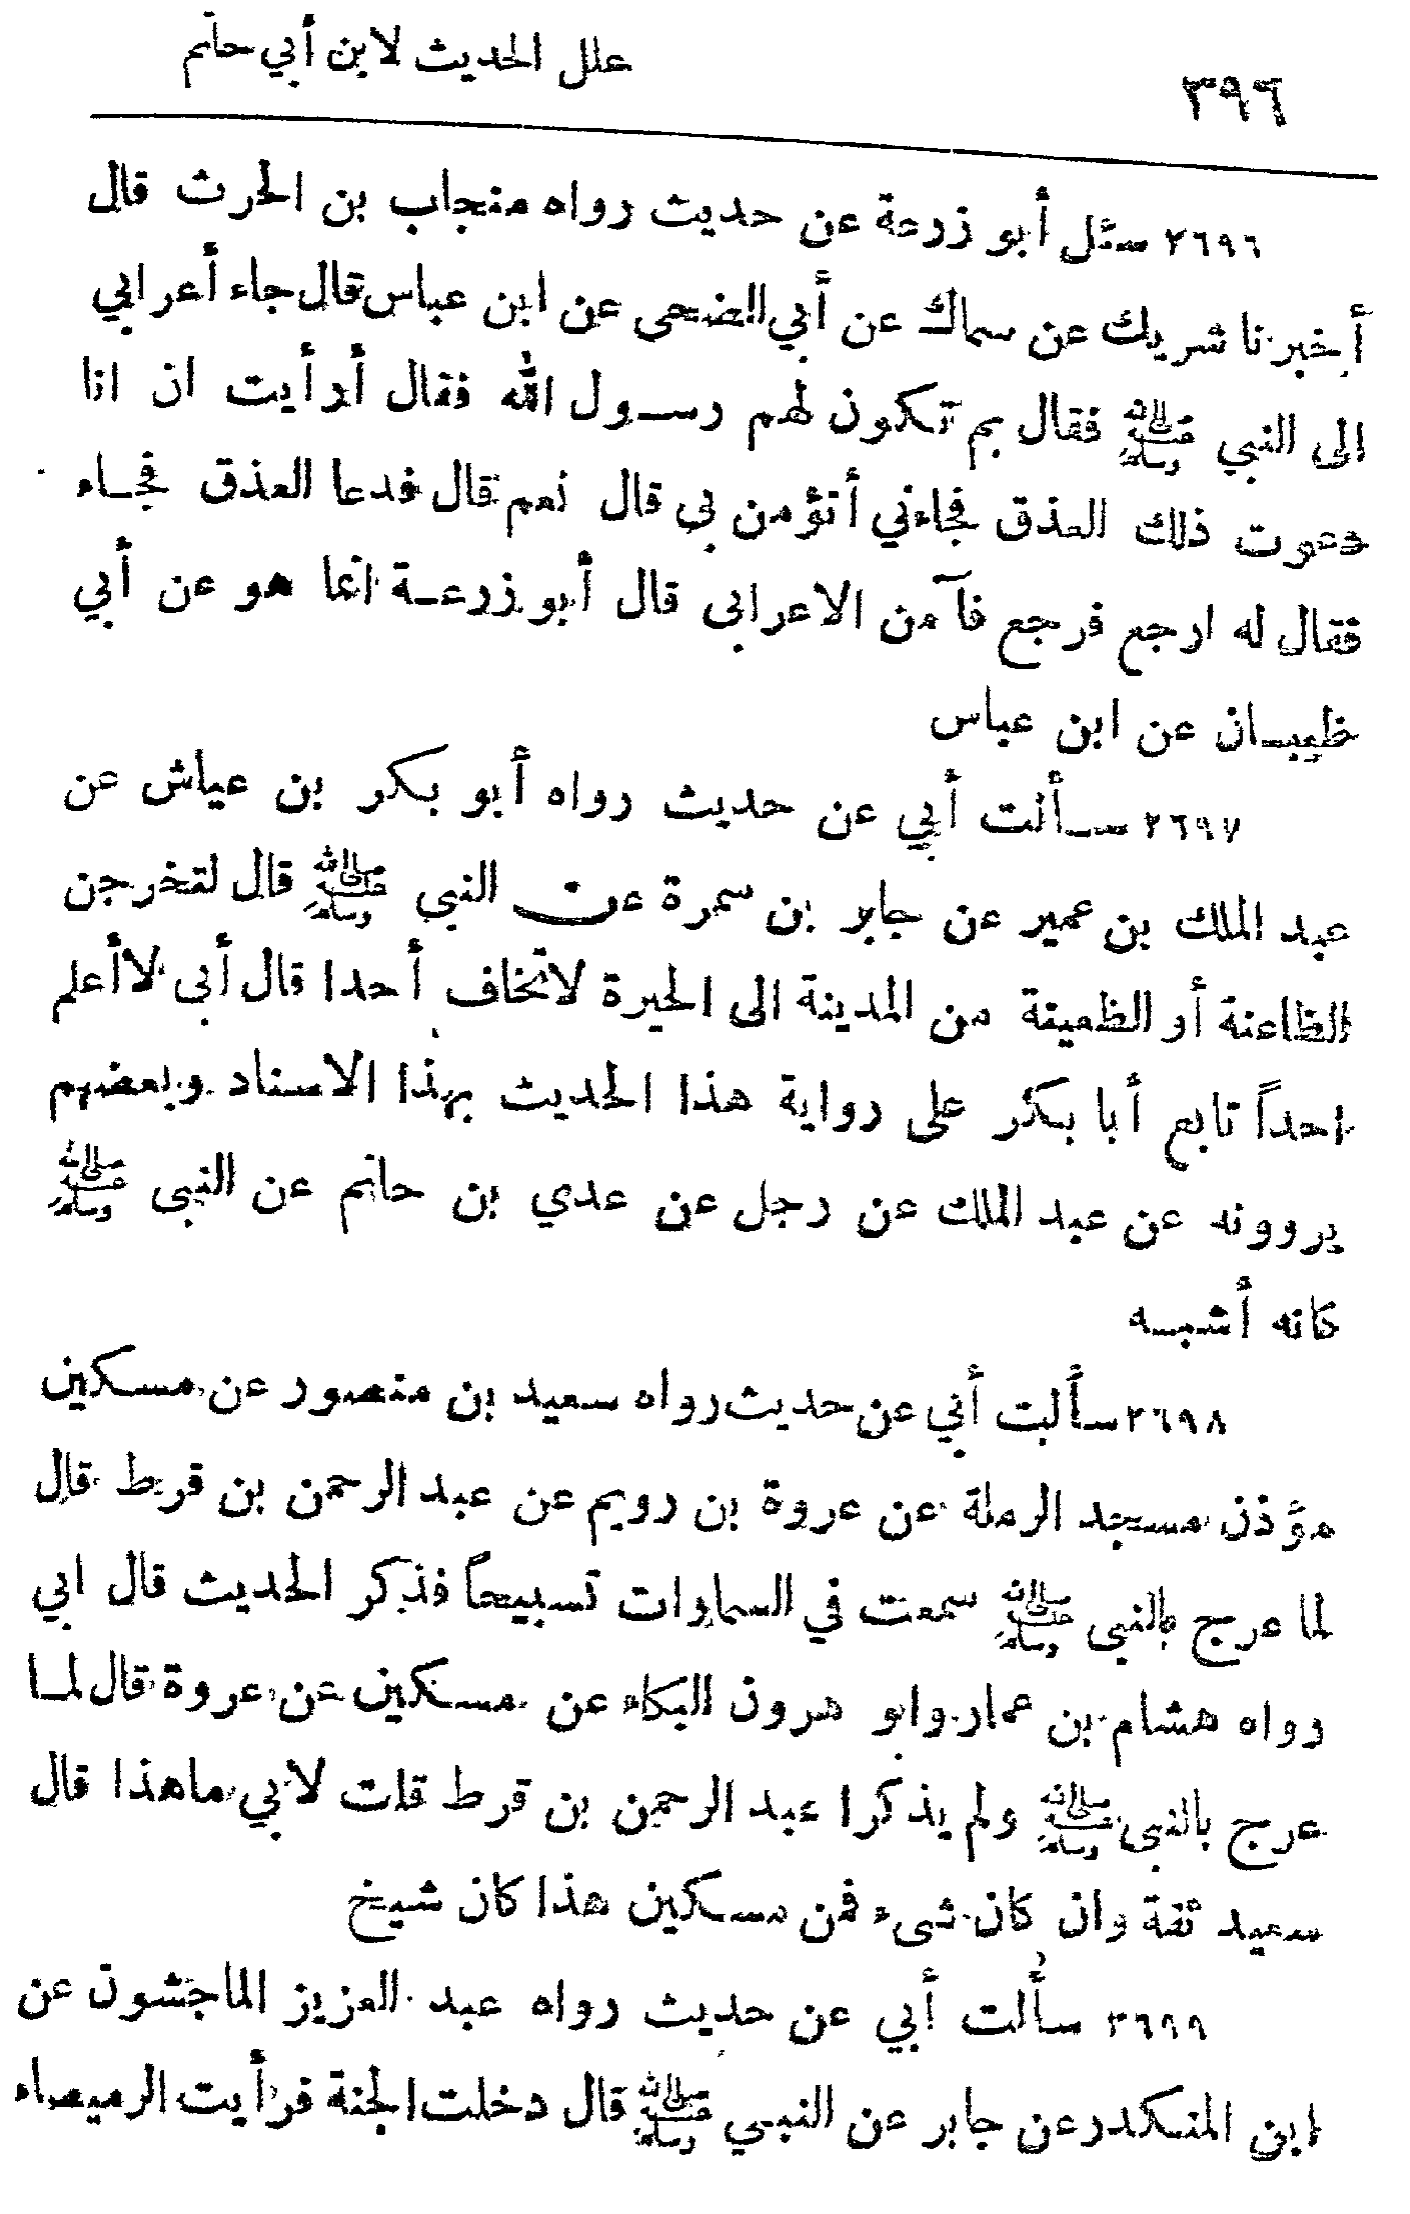 ٣٩٦
علل الحديث لابن أبي حاتم
٢٦٩٦ سئل أبو زرعة عن حديث رواه منجاب بن الحرث قال
أخبرنا شريك عن سماك عن أبي الضحى عن ابن عباس قال جاء أعرابي
الى النبي ﷺ فقال بم تكون لهم رسول الله فقال أرأيت ان انا
دعوت ذلك العذق فجاءني أتؤمن بي قال نعم قال فدعا العذق فجاء
فقال له ارجع فرجع فآمن الاعرابى قال أبو زرعة انما هو عن أبي
ظبيان عن ابن عباس
٢٦٩٧ سألت أبي عن حديث رواه أبو بكر بن عياش عن
عبد الملك بن عمير عن جابر بن سمرة عن النبي ﷺ قال لتخرجن
الظاعنة أو الظعينة من المدينة الى الحيرة لاتخاف أحدا قال أبى لاأعلم
احداً تابع أبا بكر على رواية هذا الحديث بهذا الاسناد وبعضهم
يروونه عن عبد الملك عن رجل عن عدي بن حاتم عن النبى ﷺ
كانه أشبه
٢٦٩٨ سألت أبي عن حديث رواه سعيد بن منصور عن مسكين
مؤذن مسجد الرملة عن عروة بن رويم عن عبد الرحمن بن قرط قال
لما عرج بالنبى ﷺ سمعت في السماوات تسبيحاً فذكر الحديث قال ابي
رواه هشام بن عمار وابو هرون البكاء عن مسكين عن عروة قال لما
عرج بالنبى ﷺ ولم يذكرا عبد الرحمن بن قرط قلت لابي ماهذا قال
سعيد ثقة وان كان شىء فمن مسكين هذا كان شيخ
٢٦٩٩ سألت أبي عن حديث رواه عبد العزيز الماجشون عن
ابن المنكدر عن جابر عن النبي ﷺ قال دخلت الجنة فرأيت الرميصاء